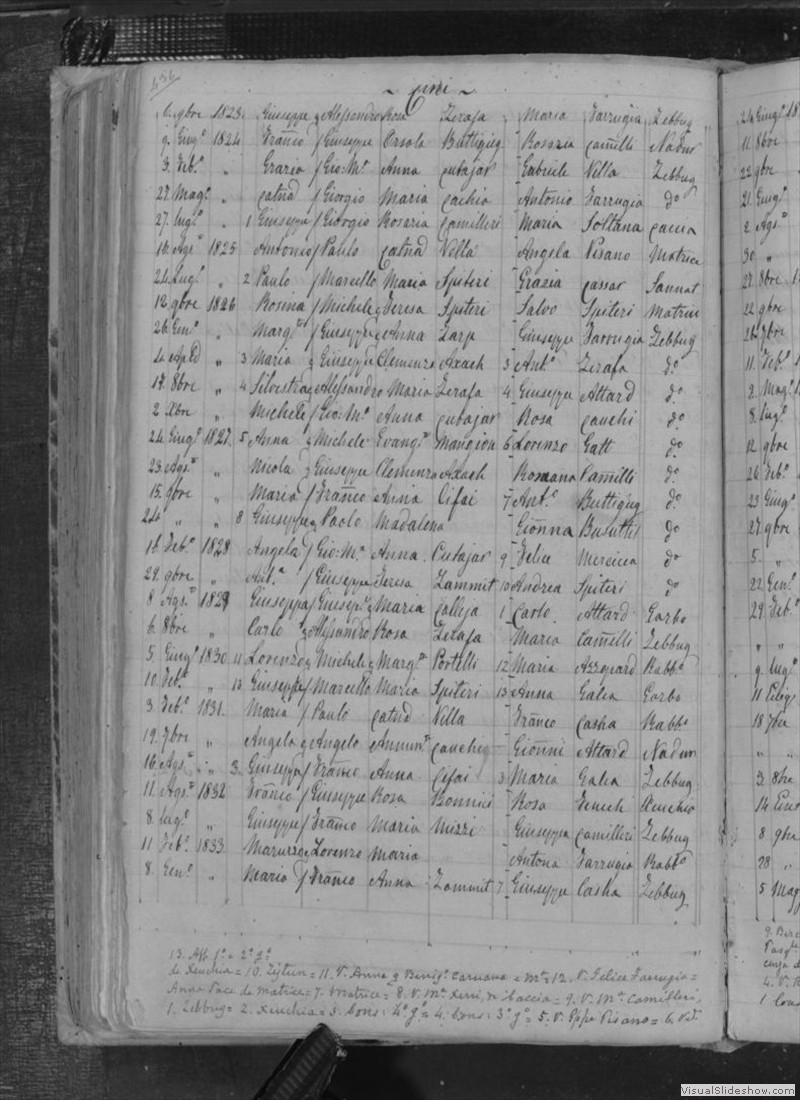 436
~ Cini ~
6. 9bre 1823. Giuseppe q Alessandro Rosa Zerafa Maria Farrugia Zebbug
9. Giug.o 1824 Franco f Giuseppe Orsola Buttigieg Rosaria Camilli Nadur
3. Feb.o „ Grazia f Gio: M.a Anna Cutajar Gabriele Villa Zebbug
27. Mag.o „ Catnd f Giorgio Maria Cachia Antonio Farrugia do
27. lugl.o „ 1 Giuseppe f Giorgio Rosaria Camilleri Maria Soltana Caccia
16. Ags.o 1825 Antonio f Paulo Catnd Villa Angela Pisano Matrice
24. Lug.o „ 2 Paulo f Marcello Maria Spiteri Grazia Cassar Sannat
12. 9bre 1826 Rosina f Michele q Teresa Spiteri Salvo Spiteri Matrice
26. Gen.o „ Marg.ta f Giuseppe q Anna Zarp Giuseppe Farrugia Zebbug
„ 3 Maria q Giuseppe Clemenza Axach 3 Ant.o Zerafa do
17. 8bre „ 4 Silvestra q Alessandro Maria Zerafa 4 Giuseppe Attard do
2 Xbre „ Michele f Gio: M.a Anna Cutajar Rosa Cauchi do
24. Giug.o 1827. 5 Anna q Michele Evang.ta Mangion 6 Lorenzo Gatt do
23. Ags.o „ Nicola q Giuseppe Clemenza Axach Romana Camilli do
15. 9bre „ Maria f Franco Anna Cifai 7 Ant.o Buttigieg do
24 „ „ 8 Giuseppe q Paolo Madalena Gionna Busuttil do
16. Feb.o 1828 Angela f Gio: M.a Anna Cutajar 9 Felice Mercieca do
29. 9bre „ Ant.a f Giuseppe Teresa Zammit 10 Andrea Spiteri do
8 Ags.o 1829 Giuseppa f Giusep.e q Maria Calleja 1 Carlo Attard Garbo
6. 8bre „ Carlo q Alessandro Rosa Zerafa Maria Camilli Zebbug
5. Giug.o 1830 11 Lorenzo q Michele q Marg.ta Portelli 12 Maria Azzopard Rabbo
10. Feb.o „ 13 Giuseppe f Marcello Maria Spiteri 13 Anna Galea Garbo
3. Feb.o 1831. Maria f Paulo Catnd Villa Franco Casha Rabbo
19. 7bre „ Angelo q Angelo Annun.ta Cauchi Gionni Attard Nadur
16. Ags.o „ 3. Giuseppa f Franco Anna Cifai 3 Maria Galea Zebbug
11. Ags.o 1832 Franco f Giuseppe Rosa Bonnici Rosa Xeuchia
8. lugl.o „ Giuseppe f Franco Maria Mizzi Giuseppa Camilleri Zebbug
11. Feb.o 1833 Maruzza q Lorenzo Maria Antona Farrugia Rabbo
8. Gen.o „ Maria f Franco Anna Zammit 7 Giuseppe Casha Zebbug
13. Aff. 1.o = 2.o g.o
de Xeuchia = 10. Zejtun = 11. V. Anna q Benig.o Caruana = 12. V. Felice Farrugia =
Anna Pace de Matrice = 7. Matrice = 8. V. M.a Xerri, de Caccia = 9. V. M.a Camilleri,
1. Zebbug = 2. Xeuchia = 3. Cons: 4.o g.o = 4. Cons: 3.o g.o = 5. V. Pppe Pisano = 6. Vid.
24 Giug.o
11. 8bre
22 9bre
21. Giug.o
2 Ags.o
30 „
27. 8bre
22 9bre
26. 7bre
11. Feb.o
2. Mag.o
8. lug.o
12 9bre
26 Feb.o
23 Giug.o
27 9bre
5. „
22 Gen.o
29. Feb.o
„ „
9. lug.o
11
18 7bre
„ „
3. 8bre
14
8 9bre
28 „
5 Mag
VisualSlideshow.com